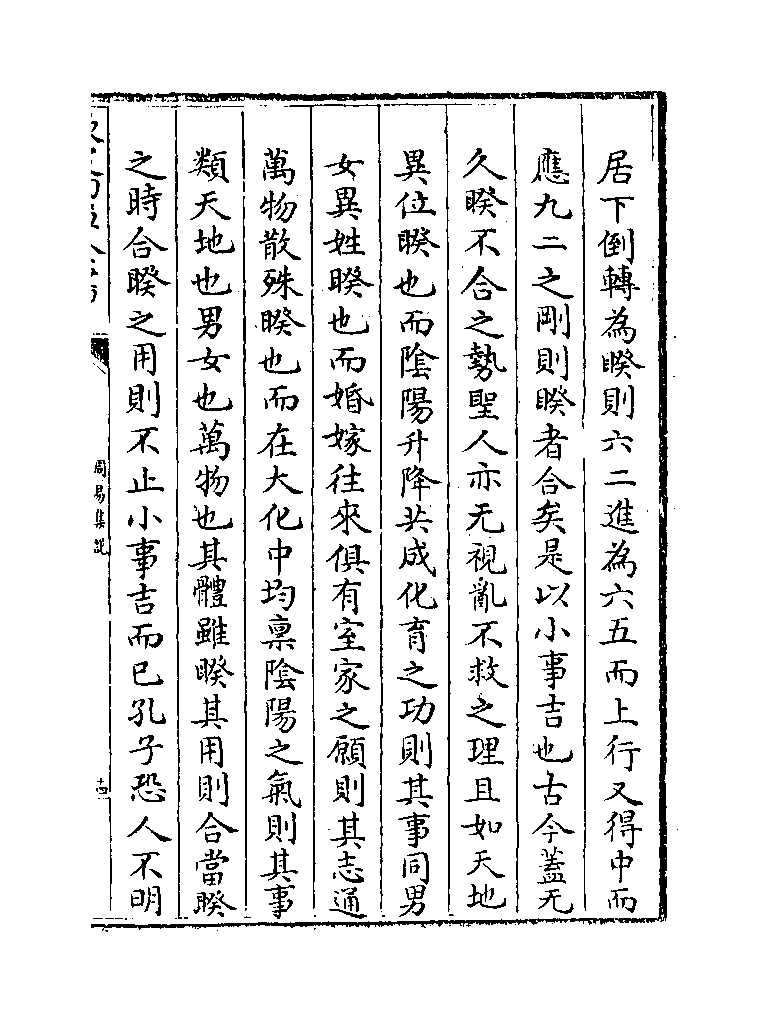 居下倒轉為睽則六二進為六五而上行又得中而
應九二之剛則睽者合矣是以小事吉也古今蓋无
久睽不合之勢聖人亦无視亂不救之理且如天地
異位睽也而陰陽升降共成化育之功則其事同男
女異姓睽也而婚嫁往來俱有室家之願則其志通
萬物散殊睽也而在大化中均稟陰陽之氣則其事
類天地也男女也萬物也其體雖睽其用則合當睽
之時合睽之用則不止小事吉而已孔子恐人不明
周易集說
十四